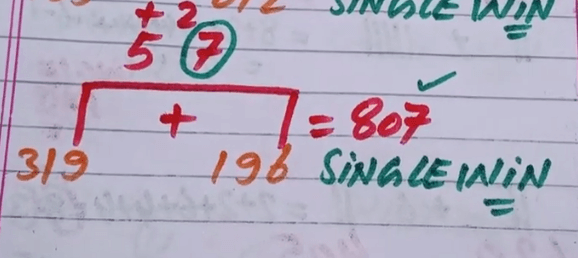 SINGLE WIN
+2
5 7
+ = 807 ✓
319 196 SINGLE WIN